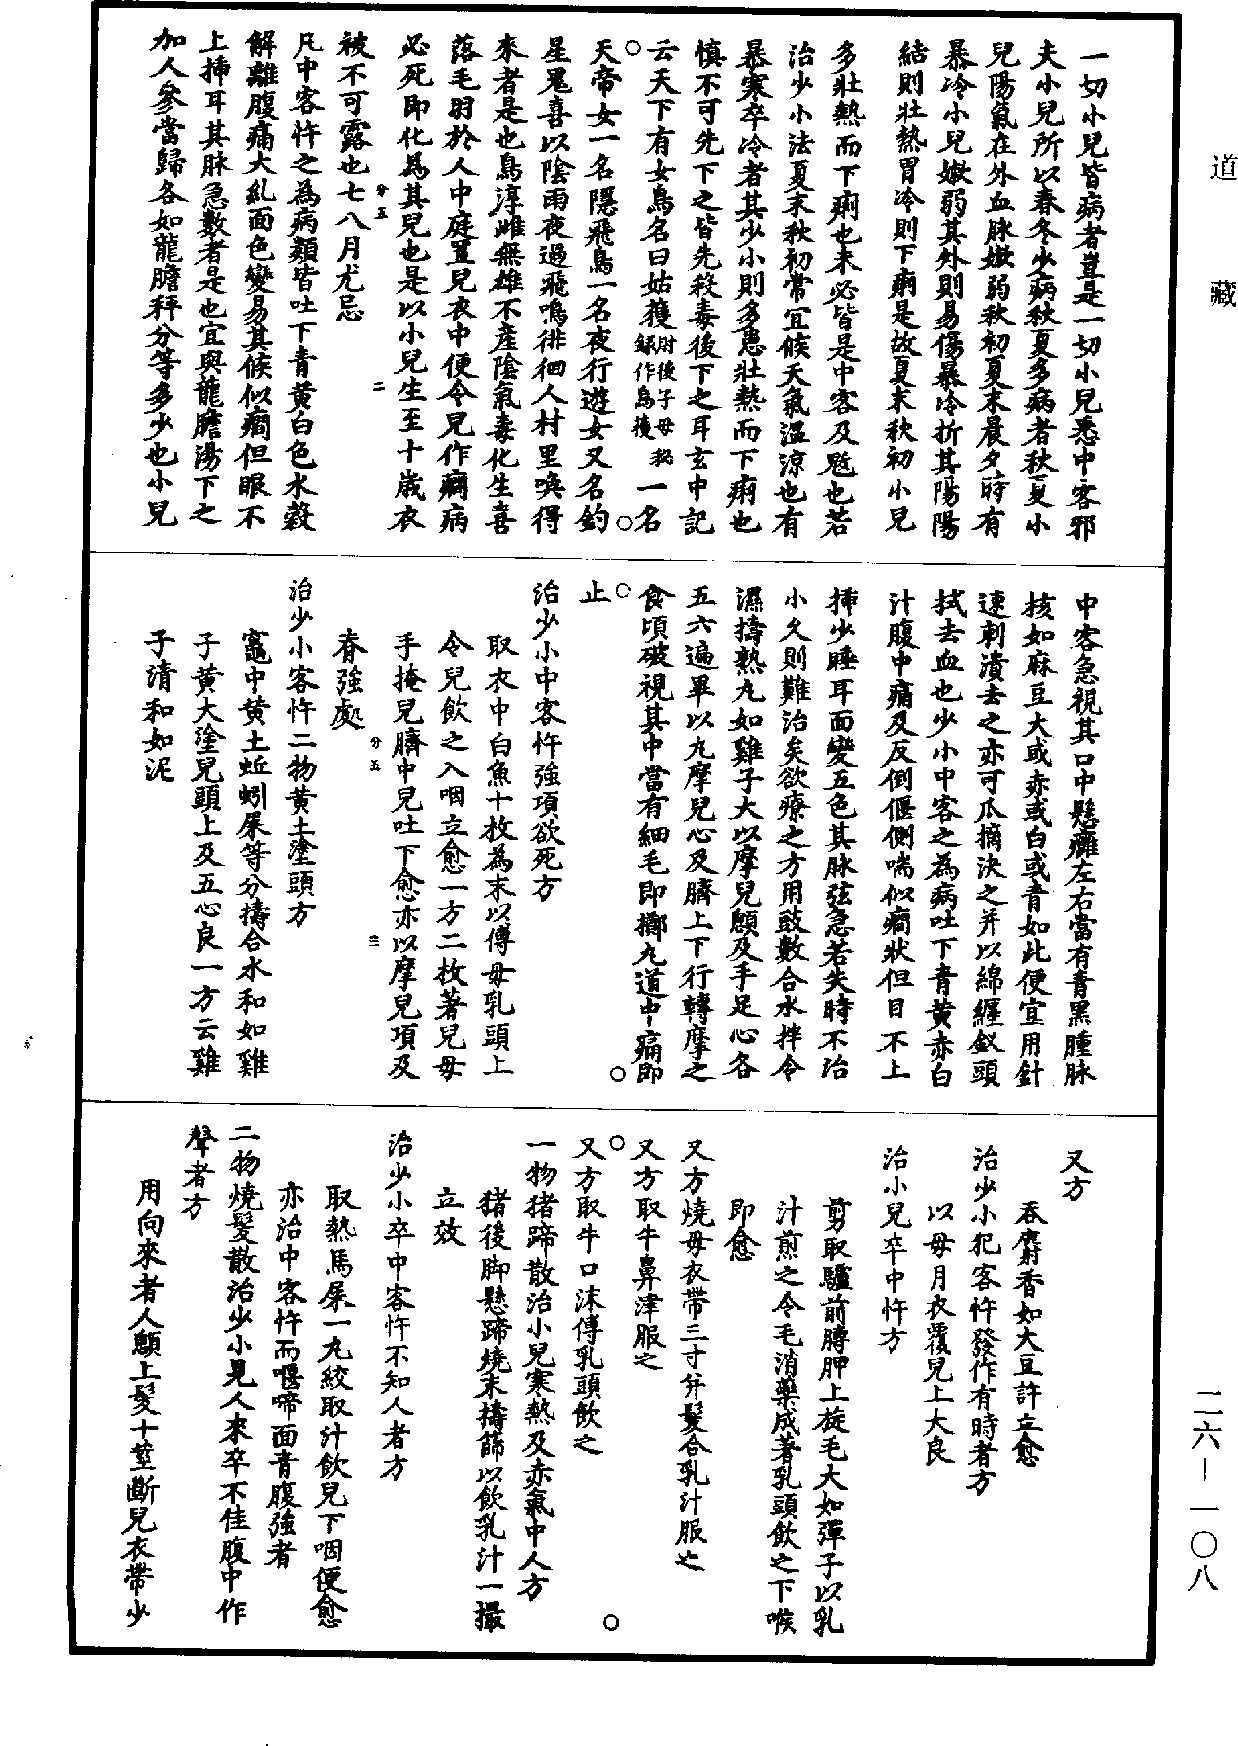 道藏
一切小兒皆病者豈是一切小兒悉中客邪
夫小兒所以春冬少病秋夏多病者秋夏小
兒陽氣在外血脉嫩弱秋初夏末晨夕時有
暴冷小兒嫩弱其外則易傷暴冷折其陽陽
結則壯熱胃冷則下痢是故夏末秋初小兒
多壯熱而下痢也未必皆是中客及魃也若
治少小法夏末秋初常宜候天氣溫涼也有
暴寒卒冷者其少小則多患壯熱而下痢也
慎不可先下之皆先殺毒後下之耳玄中記
云天下有女鳥名曰姑獲肘後子母秘録作烏獲一名
天帝女一名隱飛鳥一名夜行遊女又名鈎
星鬼喜以陰雨夜過飛鳴徘徊人村里喚得
來者是也鳥淳雌無雄不產陰氣毒化生喜
落毛羽於人中庭置兒衣中便令兒作癎病
必死即化為其兒也是以小兒生至十歲衣
被不可露也七八月尤忌
分五 二
凡中客忤之為病類皆吐下青黃白色水穀
解離腹痛大亂面色變易其候似癎但眼不
上挿耳其脉急數者是也宜與龍膽湯下之
加人參當歸各如龍膽秤分等多少也小兒
中客急視其口中懸癰左右當有青黑腫脉
核如麻豆大或赤或白或青如此便宜用針
速刺潰去之亦可爪摘決之并以綿纏釵頭
拭去血也少小中客之為病吐下青黃赤白
汁腹中痛及反倒偃側喘似癎狀但目不上
挿少睡耳面變五色其脉弦急若失時不治
小久則難治矣欲療之方用豉數合水拌令
濕擣熟丸如雞子大以摩兒顖及手足心各
五六遍畢以丸摩兒心及臍上下行轉摩之
食頃破視其中當有細毛即擲丸道中痛即
止
治少小中客忤強項欲死方
取衣中白魚十枚為末以傅母乳頭上
令兒飲之入咽立愈一方二枚著兒母
手掩兒臍中兒吐下愈亦以摩兒項及
脊強處
分五 三
治少小客忤二物黃土塗頭方
竈中黃土蚯蚓屎等分擣合水和如雞
子黃大塗兒頭上及五心良一方云雞
子清和如泥
又方
吞麝香如大豆許立愈
治少小犯客忤發作有時者方
以母月衣覆兒上大良
治小兒卒中忤方
剪取驢前膊胛上旋毛大如彈子以乳
汁煎之令毛消藥成著乳頭飲之下喉
即愈
又方燒母衣帶三寸并髮合乳汁服之
又方取牛鼻津服之
又方取牛口沫傅乳頭飲之
一物猪蹄散治小兒寒熱及赤氣中人方
猪後脚懸蹄燒末擣篩以飲乳汁一撮
立效
治少小卒中客忤不知人者方
取熱馬屎一丸絞取汁飲兒下咽便愈
亦治中客忤而㗭啼面青腹強者
二物燒髮散治少小見人來卒不佳腹中作
聲者方
用向來者人顖上髮十莖斷兒衣帶少
二六—一〇八